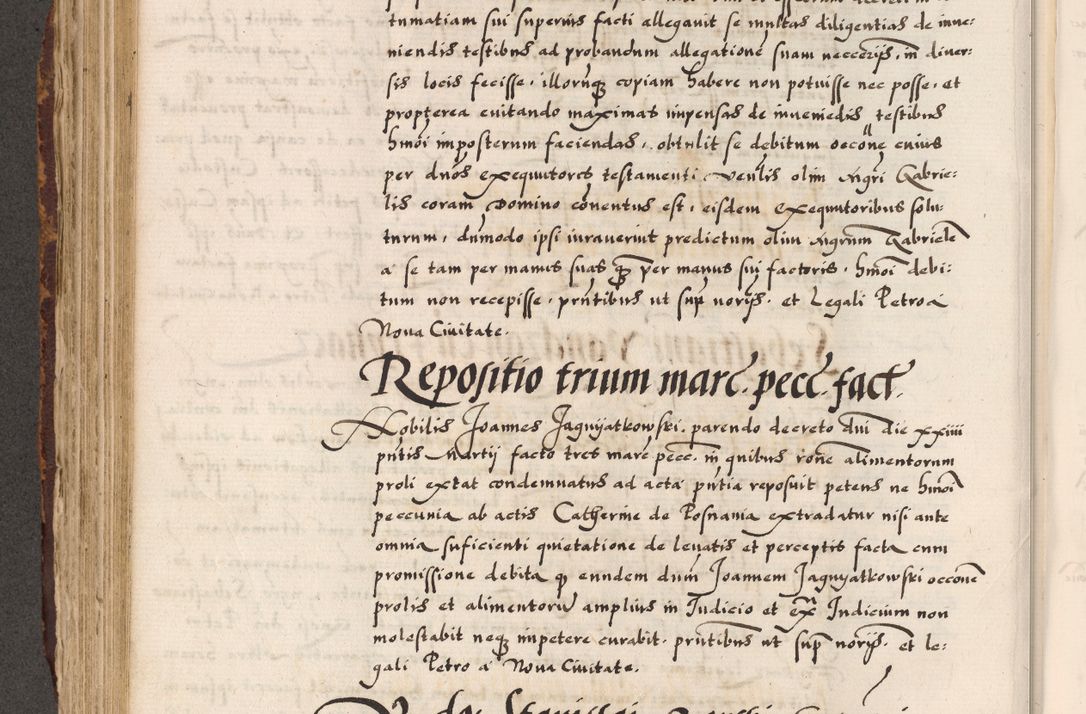 tumatiam sui superius facti allegavit se multas diligentias de inve:
niendis testibus ad probandum allegatione suam neccerijs, in diver:
sis locis fecisse, illorumq copiam habere non potuisse nec posse, et
propterea evitando maximas impensas de inveniedis testibus
hmoi imposterum faciendas, obtulit se debitum occone cuius
per dnos exequutores testamenti olim Nigri Gabrie:
lis coram Domino conentus est, eisdem exequutoribus solu:
turum, dumodo ipsi iuraverint predictum olim Nigrum Gabriele
a se tam per manus suas q per manus sui factoris, hmoi debi:
tum non recepisse, pntibus ut sup norijs, et Legali Petro a
Nova Civitate.
Repositio trium marc. pecc. fact.
Nobilis Joannes Jagnyatkowski, parendo decreto dni die xxiiii
pntis Martij facto tres marc pecc. in quibus rone alimentorum
proli extat condemnatus ad acta pntia reposuit petens ne hmoi
peccunia ab actis Catherine de Posnania extradatur nisi ante
omnia suficienti quietatione de levatis et perceptis facta cum
promissione debita q eundem dum Joannem Jagnyatkowski occone
prolis et alimentoru amplius in Judicio et ex Judicium non
molestabit neq impetere curabit, pntibus ut sup norijs. et le:
gali Petro a Nova Civitate.